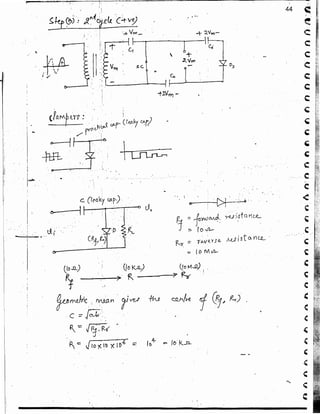 44
Step ③ : 2nd cycle (+ve)
- Vm -
+ 2Vm -
+
C1
C3
+
Vm
2C
2Vm
-
D3
C2
+2Vm -
Clampers :
practical cap (leaky cap)
C (leaky cap)
do
di
D
R
(Rf, Rr)
Rf = forward resistance
= 10Ω
Rr = reverse resistance
= 10 MΩ
(10Ω) (10KΩ) (10MΩ)
Rf → R → Rr
Geometric mean gives the centre of (Rf, Rr).
C = √ab
R = √Rf·Rr
R = √10×10×10⁶ = 10⁴ = 10 KΩ